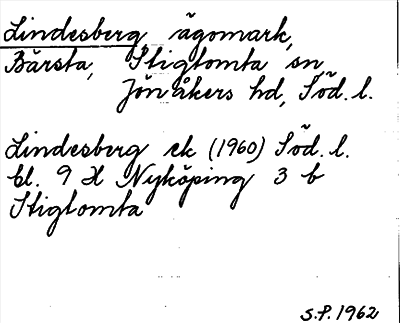 Lindesberg ägomark,
Bärsta, Stigtomta sn,
Jönåkers hd, Söd. l.
Lindesberg ek (1960) Söd. l.
bl. 9 H Nyköping 3 b
Stigtomta
S.P. 1962